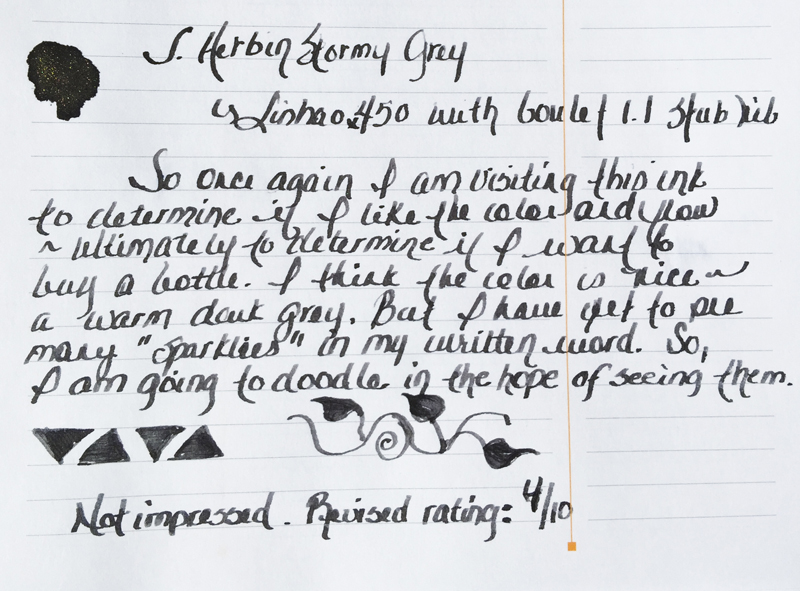 J. Herbin Stormy Grey
↳ Jinhao x450 with Goulet 1.1 Stub Nib
So once again I am visiting this ink
to determine if I like the color and flow
~ ultimately to determine if I want to
buy a bottle. I think the color is nice ~
a warm dark grey. But I have yet to see
many "sparklies" in my written word. So,
I am going to doodle in the hope of seeing them.
Not impressed. Revised rating: 4/10